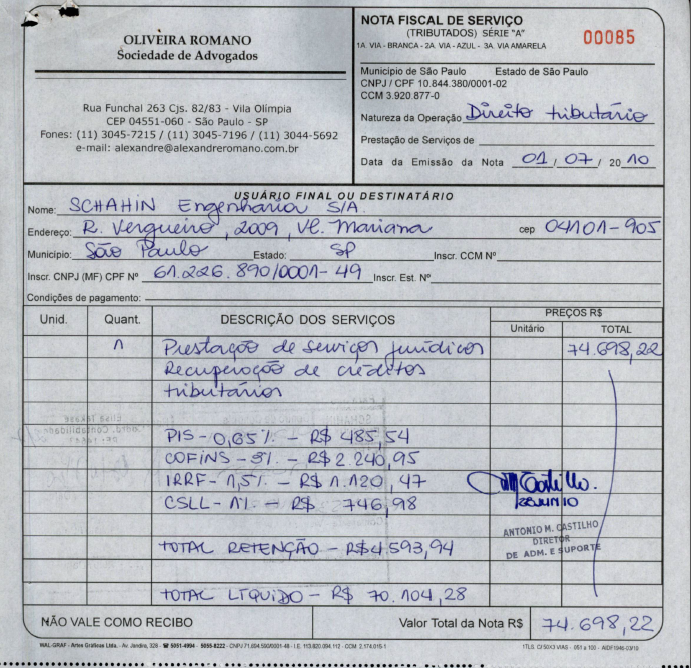 OLIVEIRA ROMANO
Sociedade de Advogados
Rua Funchal 263 Cjs. 82/83 - Vila Olímpia
CEP 04551-060 - São Paulo - SP
Fones: (11) 3045-7215 / (11) 3045-7196 / (11) 3044-5692
e-mail: alexandre@alexandreromano.com.br
NOTA FISCAL DE SERVIÇO
(TRIBUTADOS) SÉRIE "A"
00085
1A. VIA - BRANCA - 2A. VIA - AZUL - 3A. VIA AMARELA
Município de São Paulo Estado de São Paulo
CNPJ / CPF 10.844.380/0001-02
CCM 3.920.877-0
Natureza da Operação Direito tributário
Prestação de Serviços de
Data da Emissão da Nota 01 / 07 / 20 10
USUÁRIO FINAL OU DESTINATÁRIO
Nome: SCHAHIN Engenharia S/A.
Endereço: R. Vergueiro, 2009, Vl. Mariana cep 04101-905
Município: São Paulo Estado: SP Inscr. CCM Nº
Inscr. CNPJ (MF) CPF Nº 61.226.890/0001-49 Inscr. Est. Nº
Condições de pagamento:
Unid. Quant. DESCRIÇÃO DOS SERVIÇOS PREÇOS R$
Unitário TOTAL
1 Prestação de serviços jurídicos 74.698,22
Recuperação de créditos
tributários
PIS - 0,65%. - R$ 485,54
COFINS - 3%. - R$ 2.240,95
IRRF - 1,5%. - R$ 1.120,47
CSLL - 1%. - R$ 746,98
28 JUN 10
TOTAL RETENÇÃO - R$ 4.593,94
ANTONIO M. CASTILHO
DIRETOR
DE ADM. E SUPORTE
TOTAL LÍQUIDO - R$ 70.104,28
NÃO VALE COMO RECIBO Valor Total da Nota R$ 74.698,22
MAL-GRAF - Artes Gráficas Ltda. - Av. Jandira, 328 - ☎ 5051-4994 - 5055-8222 - CNPJ 71.094.550/0001-46 - I.E. 113.820.094.112 - CCM. 2.174.015-1
1TLS. C/ 50X3 VIAS - 051 a 100 - AIDF1946-03/10